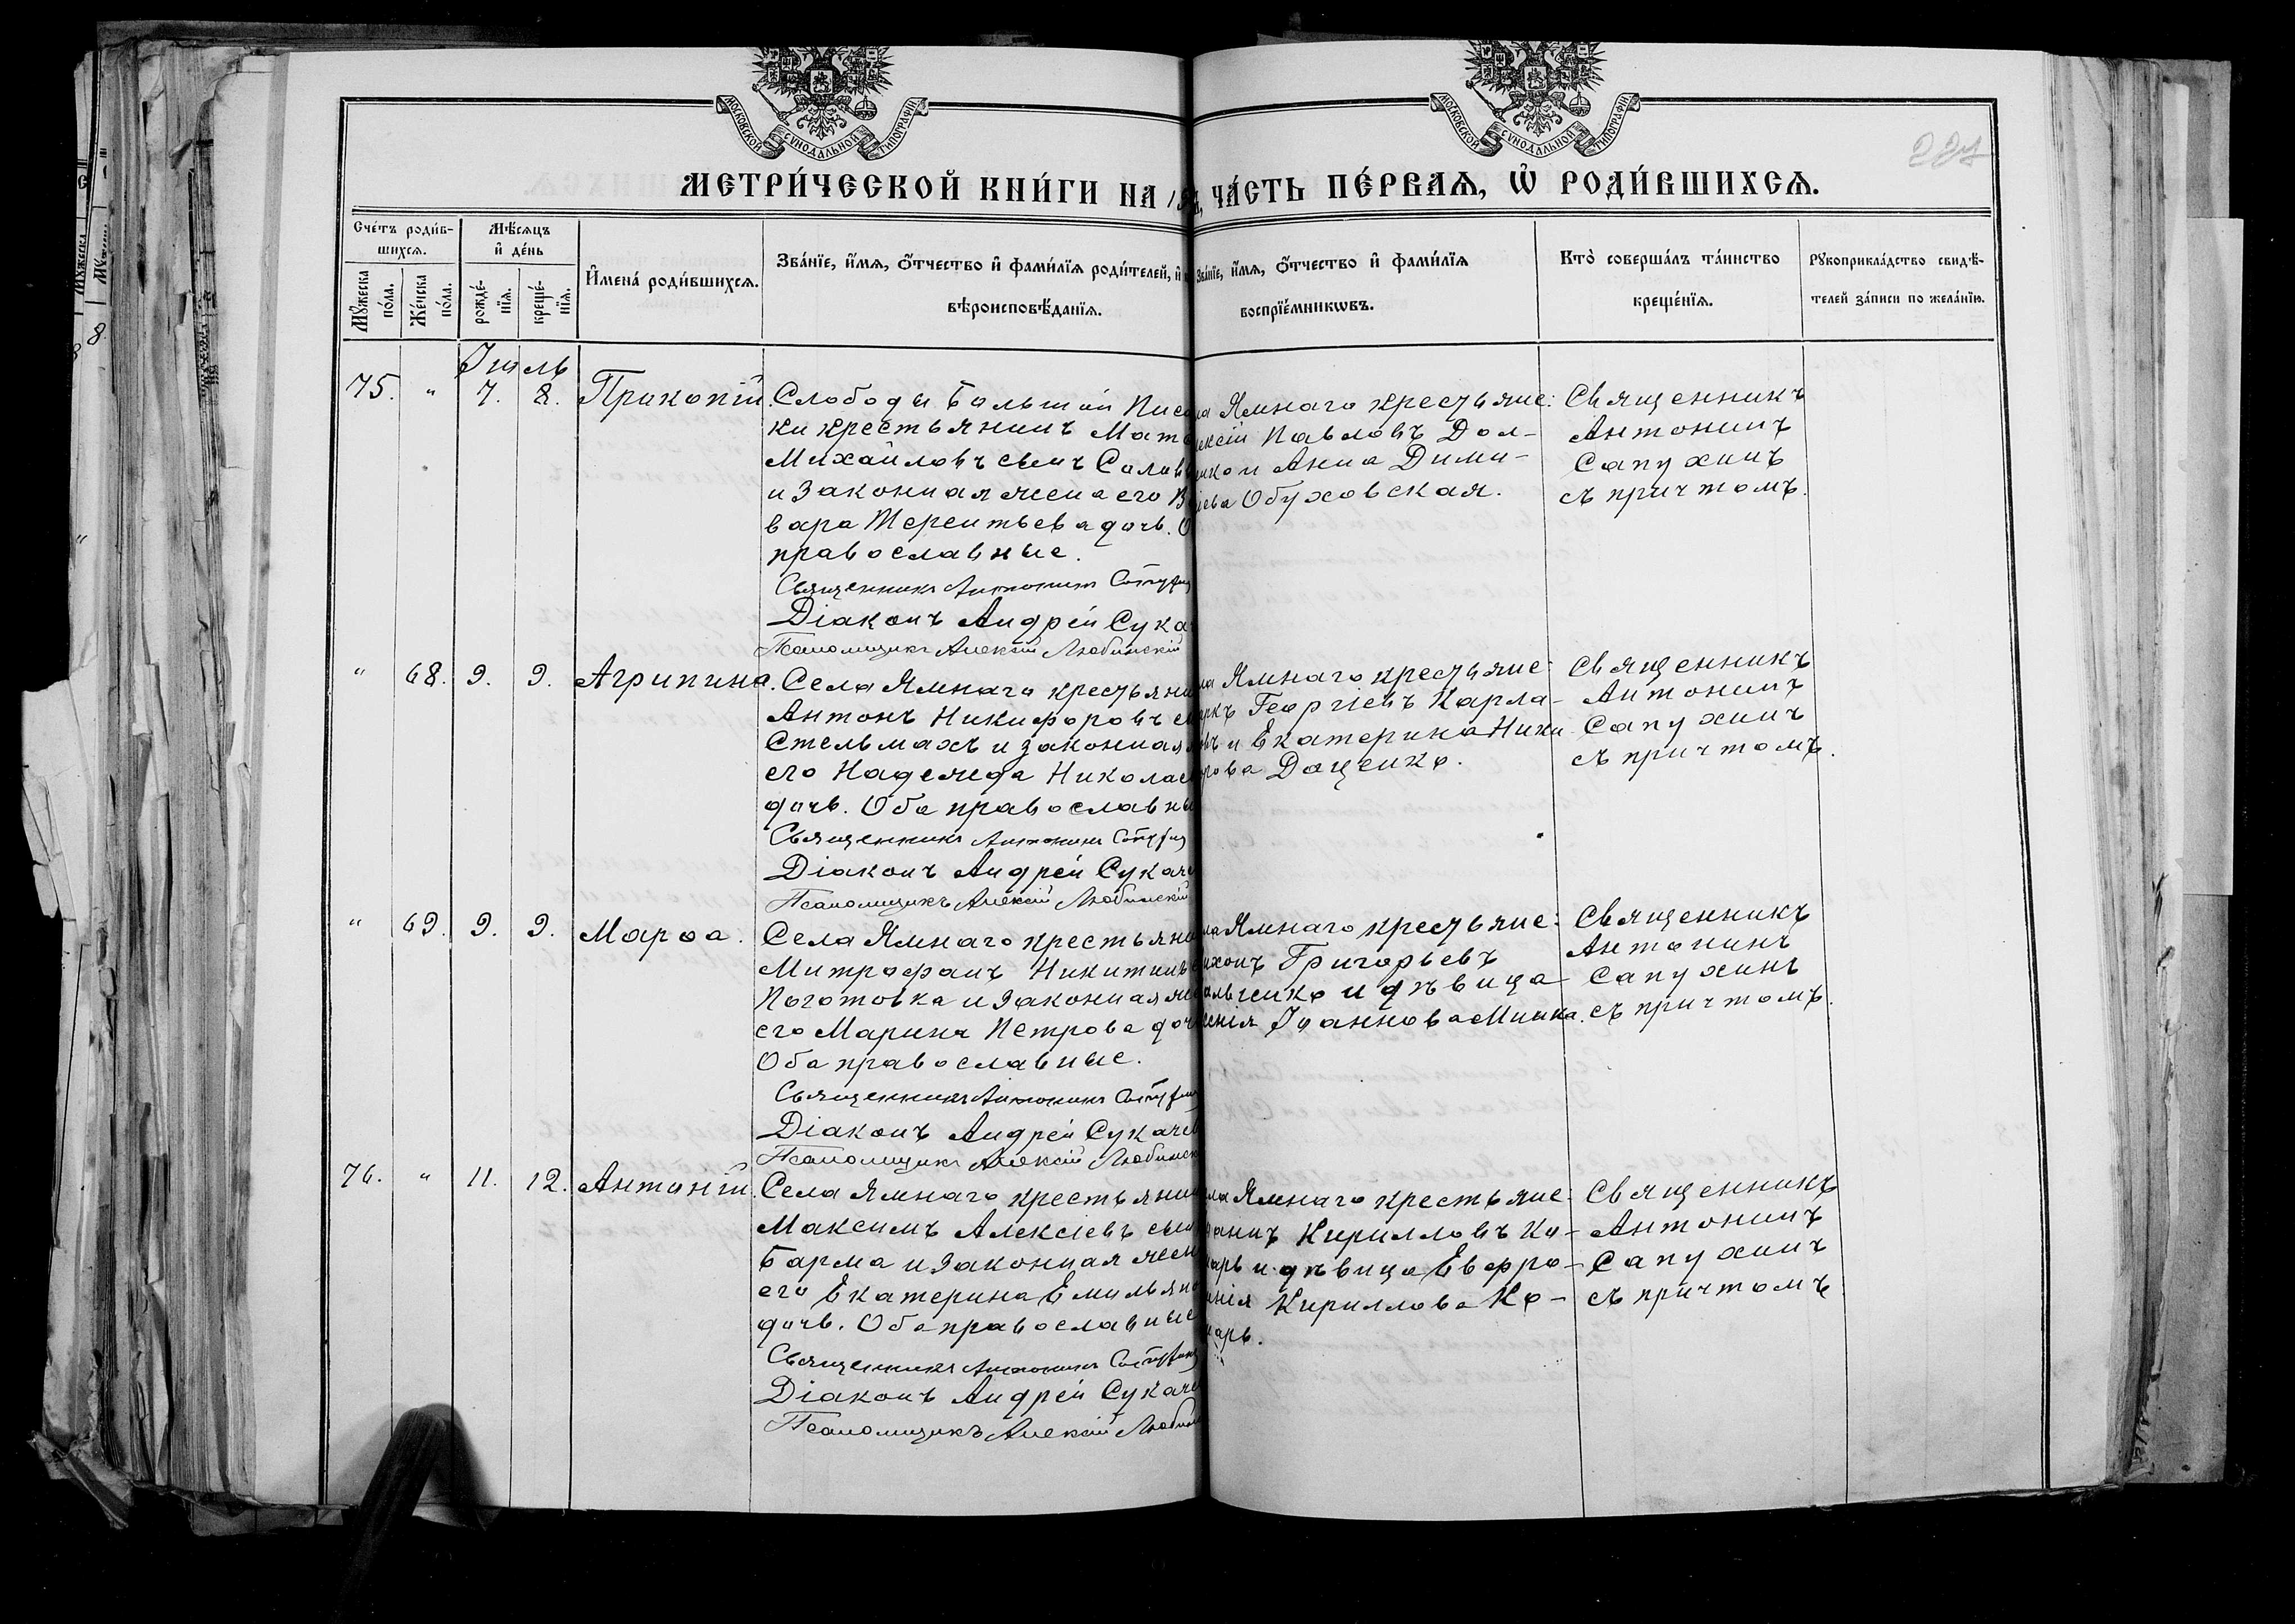 МОСКОВСКОЙ СѴНОДАЛЬНОЙ ТИПОГРАФІИ
МОСКОВСКОЙ СѴНОДАЛЬНОЙ ТИПОГРАФІИ
МЕТРИ́ЧЕСКОЙ КНИ́ГИ НА 19
ЧА́СТЬ ПЕ́РВАЯ, Ѡ РОДИ́ВШИХСЯ.
Сче́тъ роди́в-
шихся.
Мꙋ́жеска по́ла.
Же́нска по́ла.
Мѣ́сяцъ
и҆ де́нь
рожде́-
нїя.
креще́-
нїя.
И҆мена̀ роди́вшихся.
Зва́нїе, и҆́мя, о҆́тчество и҆ фами́лїя роди́телей, и҆
вѣроисповѣ́данїя.
Зва́нїе, и҆́мя, о҆́тчество и҆ фами́лїя
воспрїе́мникѡвъ.
Кто̀ соверша́лъ та́инство
креще́нїя.
Рꙋкоприкла́дство свидѣ́-
телей за́писи по жела́нїю.
Іюль
75. " 7. 8. Прокопій. Слободы Большой Писа
ки крестьянинъ Матв
Михайловъ сынъ Солов
и законная жена его В
вара Терентьева дочь. О
православные.
Священникъ Антонинъ Сапухин
Діаконъ Андрей Сукач
Псаломщикъ Алексій Любинскій
ла Ямнаго крестьяне:
ексій Павловъ Дол-
енко и Анна Дими-
іева Обуховская.
Священникъ
Антонинъ
Сапухинъ
съ причтомъ.
" 68. 9. 9. Агрипина. Села Ямнаго крестьяни
Антонъ Никифоровъ с
Стельмахъ и законная ж
его Надежда Николаев
дочь. Оба православны
Священникъ Антонинъ Сапухин
Діаконъ Андрей Сукаче
Псаломщикъ Алексій Любинскій
ла Ямнаго крестьяне:
ркъ Георгіевъ Карла-
въ и Екатерина Ники
рова Доценко.
Священникъ
Антонинъ
Сапухинъ
съ причтомъ.
" 69. 9. 9. Марѳа. Села Ямнаго крестьяни
Митрофанъ Никитинъ с
Поготовка и законная же
его Марина Петрова доч
Оба православные.
Священникъ Антонинъ Сапухин
Діаконъ Андрей Сукачев
Псаломщикъ Алексій Любинск
ла Ямнаго крестьяне:
ихонъ Григорьевъ
альченко и дѣвица
сенія Іоаннова Минка.
Священникъ
Антонинъ
Сапухинъ
съ причтомъ.
76. " 11. 12. Антоній. Села Ямнаго крестьянин
Максимъ Алексіевъ сын
Барма и законная жен
его Екатерина Емильяно
дочь. Оба православные
Священникъ Антонинъ Сапухин
Діаконъ Андрей Сукаче
Псаломщикъ Алексій Любин
ла Ямнаго крестьяне:
оаннъ Кирилловъ Ко-
арь и дѣвица Евфро-
инія Кириллова Ко-
арь.
Священникъ
Антонинъ
Сапухинъ
съ причтомъ